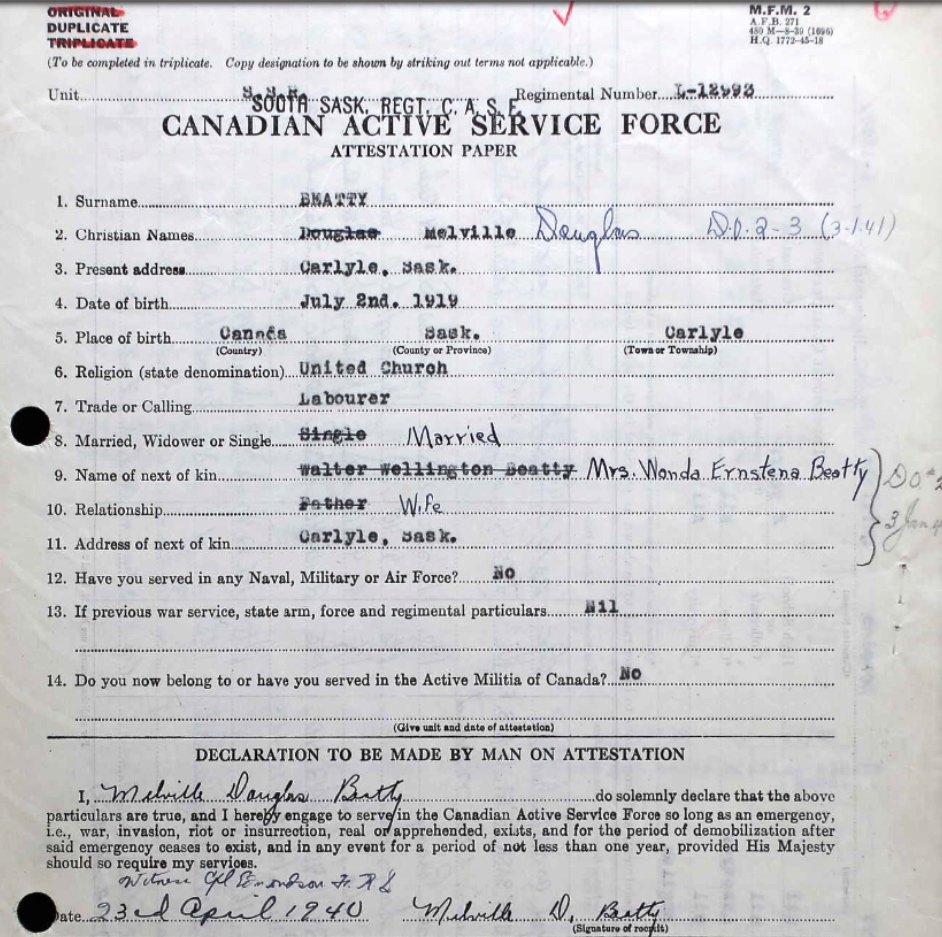 ORIGINAL
DUPLICATE
TRIPLICATE
M.F.M. 2
A.F.B. 271
480 M—8-39 (1696)
H.Q. 1772-45-18
(To be completed in triplicate. Copy designation to be shown by striking out terms not applicable.)
Unit SOUTH SASK. REGT. C. A. S. F. Regimental Number L-12593
CANADIAN ACTIVE SERVICE FORCE
ATTESTATION PAPER
1. Surname BEATTY
2. Christian Names Douglas Melville Douglas D.O.2-3 (3-1-41)
3. Present address Carlyle, Sask.
4. Date of birth July 2nd. 1919
5. Place of birth Canada Sask. Carlyle
(Country) (County or Province) (Town or Township)
6. Religion (state denomination) United Church
7. Trade or Calling Labourer
8. Married, Widower or Single Single Married
9. Name of next of kin Walter Wellington Beatty Mrs. Wanda Ernstena Beatty
10. Relationship Father Wife
11. Address of next of kin Carlyle, Sask.
12. Have you served in any Naval, Military or Air Force? No
13. If previous war service, state arm, force and regimental particulars Nil
14. Do you now belong to or have you served in the Active Militia of Canada? No
(Give unit and date of attestation)
DECLARATION TO BE MADE BY MAN ON ATTESTATION
I, Melville Douglas Beatty do solemnly declare that the above
particulars are true, and I hereby engage to serve in the Canadian Active Service Force so long as an emergency,
i.e., war, invasion, riot or insurrection, real or apprehended, exists, and for the period of demobilization after
said emergency ceases to exist, and in any event for a period of not less than one year, provided His Majesty
should so require my services.
Witness Cpl Edmondson
Date 23rd April 1940 Melville D. Beatty
(Signature of recruit)